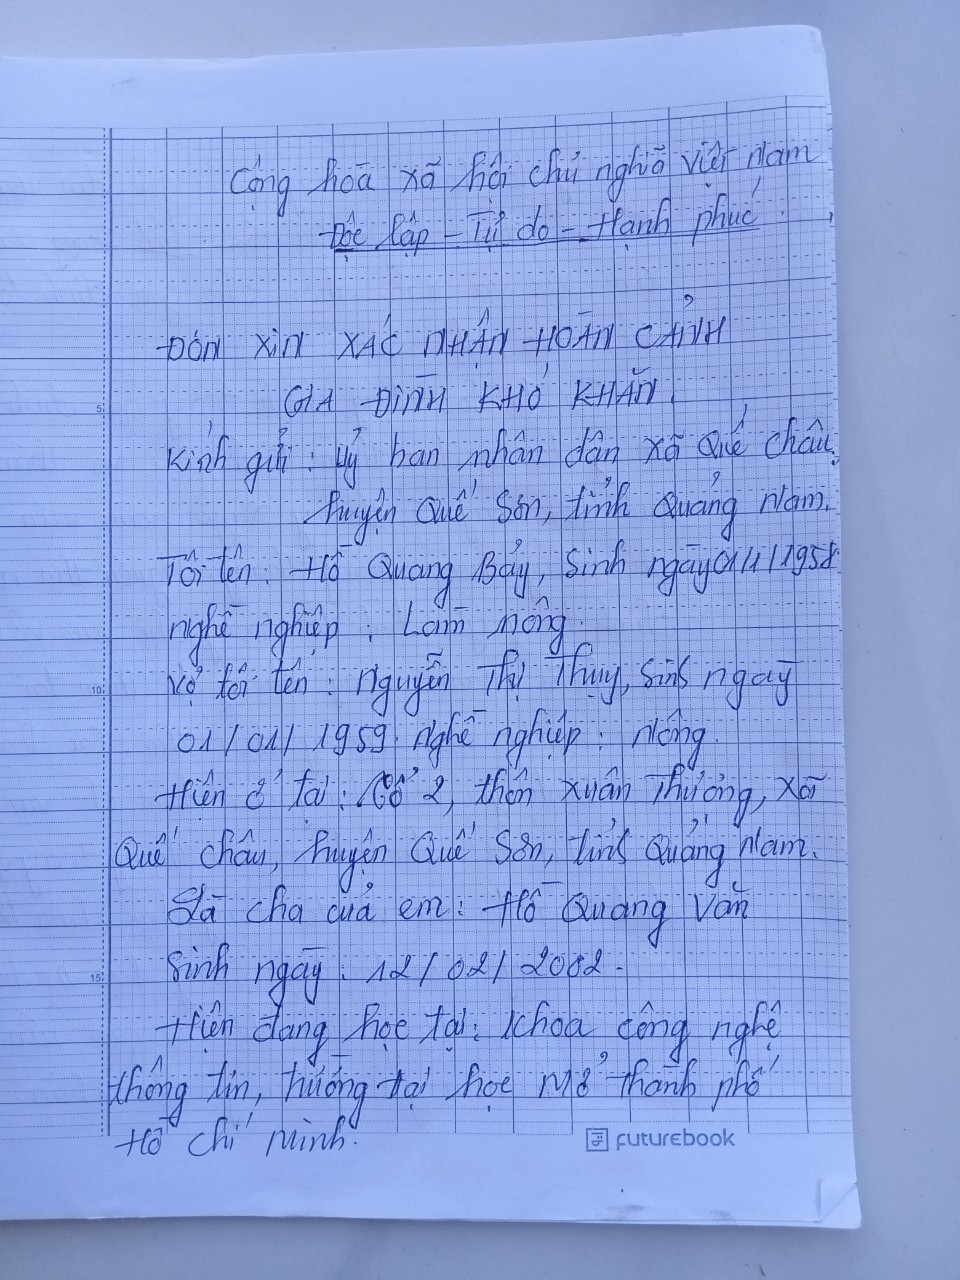 Cộng hoà xã hội chủ nghĩa Việt Nam
Độc lập - Tự do - Hạnh phúc.
ĐƠN XIN XÁC NHẬN HOÀN CẢNH
GIA ĐÌNH KHÓ KHĂN.
Kính gửi: Uỷ ban nhân dân xã Quế Châu,
huyện Quế Sơn, tỉnh Quảng Nam.
Tôi tên: Hồ Quang Bảy, Sinh ngày 01/1/1958
nghề nghiệp: Làm nông.
Vợ tôi tên: Nguyễn Thị Thuy, Sinh ngày
01/01/1959. Nghề nghiệp: Nông.
Hiện ở tại: Tổ 2, thôn Xuân Thượng, xã
Quế Châu, huyện Quế Sơn, tỉnh Quảng Nam.
Là cha của em: Hồ Quang Văn
Sinh ngày: 12/02/2002.
Hiện đang học tại: Khoa công nghệ
thông tin, trường Đại học Mở thành phố
Hồ Chí Minh.
FUTUREBOOK
5
10
15